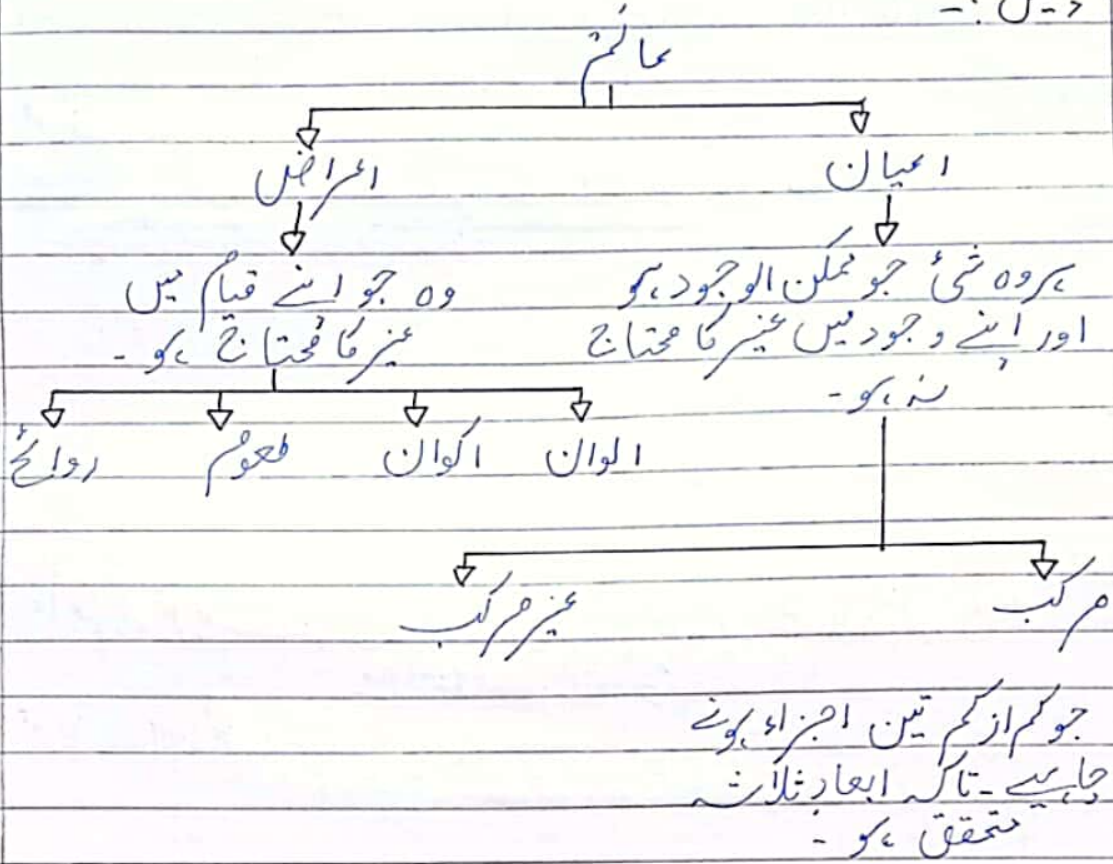 ذیل :-
عالَم
اعیان
اعراض
ہر وہ شئ جو ممکن الوجود ہو
اور اپنے وجود میں غیر کا محتاج
نہ ہو -
وہ جو اپنے قیام میں
غیر کا محتاج ہو -
الوان اکوان طعوم روائح
مرکب
غیر مرکب
جو کم از کم تین اجزاء ہونے
چاہیے - تاکہ ابعادِ ثلاثہ
متحقق ہو -